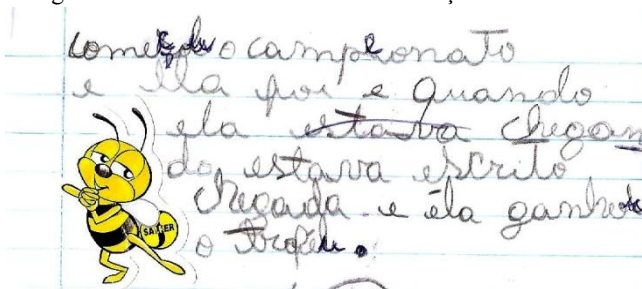 começou o campeonato
e ela foi e quando
ela estava chegan
do estava escrito
chegada e ela ganhou
o troféu.